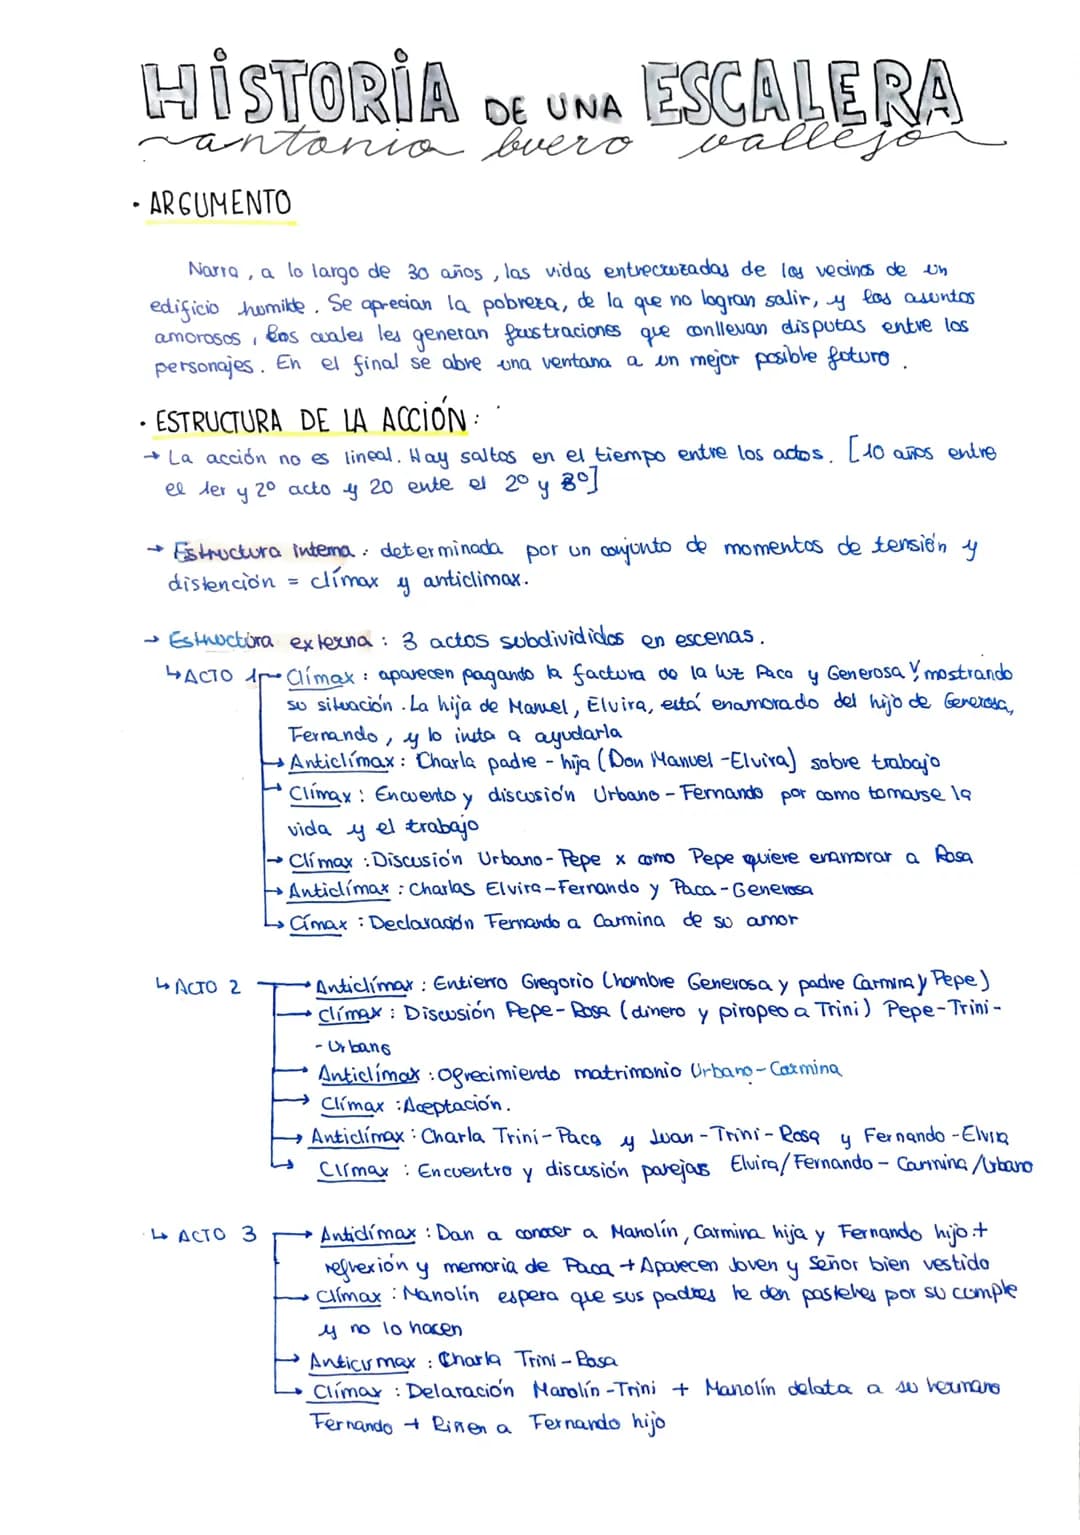 HISTORIA DE UNA ESCALERA
antonio buero vallejo
· ARGUMENTO
Narra, a lo largo de 30 años, las vidas entrecruzadas de los vecinos de un
edificio humilde. Se aprecian la pobreza, de la que no logran salir, y los asuntos
amorosos, los cuales les generan frustraciones que conllevan disputas entre los
personajes. En el final se abre una ventana a un mejor posible futuro.
· ESTRUCTURA DE LA ACCIÓN:
→ La acción no es lineal. Hay saltos en el tiempo entre los actos. [10 años entre
el 1er y 2º acto y 20 ente el 2º y 3º]
→ Estructura interna: determinada por un conjunto de momentos de tensión y
distención = clímax y anticlimax.
→ Estructura externa: 3 actos subdivididos en escenas.
↳ ACTO 1 → Clímax: aparecen pagando la factura de la luz Paca y Generosa y mostrando
su situación. La hija de Manuel, Elvira, está enamorado del hijo de Generosa,
Fernando, y lo insta a ayudarla
→ Anticlímax: Charla padre - hija (Don Manuel - Elvira) sobre trabajo
→ Clímax: Encuento y discusión Urbano - Fernando por como tomarse la
vida y el trabajo
→ Clímax: Discusión Urbano - Pepe x como Pepe quiere enamorar a Rosa
→ Anticlímax: Charlas Elvira - Fernando y Paca - Generosa
→ Címax: Declaración Fernando a Carmina de su amor
↳ ACTO 2 → Anticlímax: Entierro Gregorio (hombre Generosa y padre Carmina y Pepe)
→ Clímax: Discusión Pepe - Rosa (dinero y piropeo a Trini) Pepe - Trini -
- Urbano
→ Anticlímax: Ofrecimiendo matrimonio Urbano - Carmina
→ Clímax: Aceptación.
→ Anticlímax: Charla Trini - Paca y Juan - Trini - Rosa y Fernando - Elvira
→ Clímax: Encuentro y discusión parejas Elvira/Fernando - Carmina/Urbano
↳ ACTO 3 → Anticlímax: Dan a conocer a Manolín, Carmina hija y Fernando hijo +
reflexión y memoria de Paca + Aparecen Joven y Señor bien vestido
→ Clímax: Manolín espera que sus padres le den pasteles por su cumple
y no lo hacen
→ Anticlímax: Charla Trini - Rosa
→ Clímax: Delaración Manolín - Trini + Manolín delata a su hermano
Fernando + Riñen a Fernando hijo